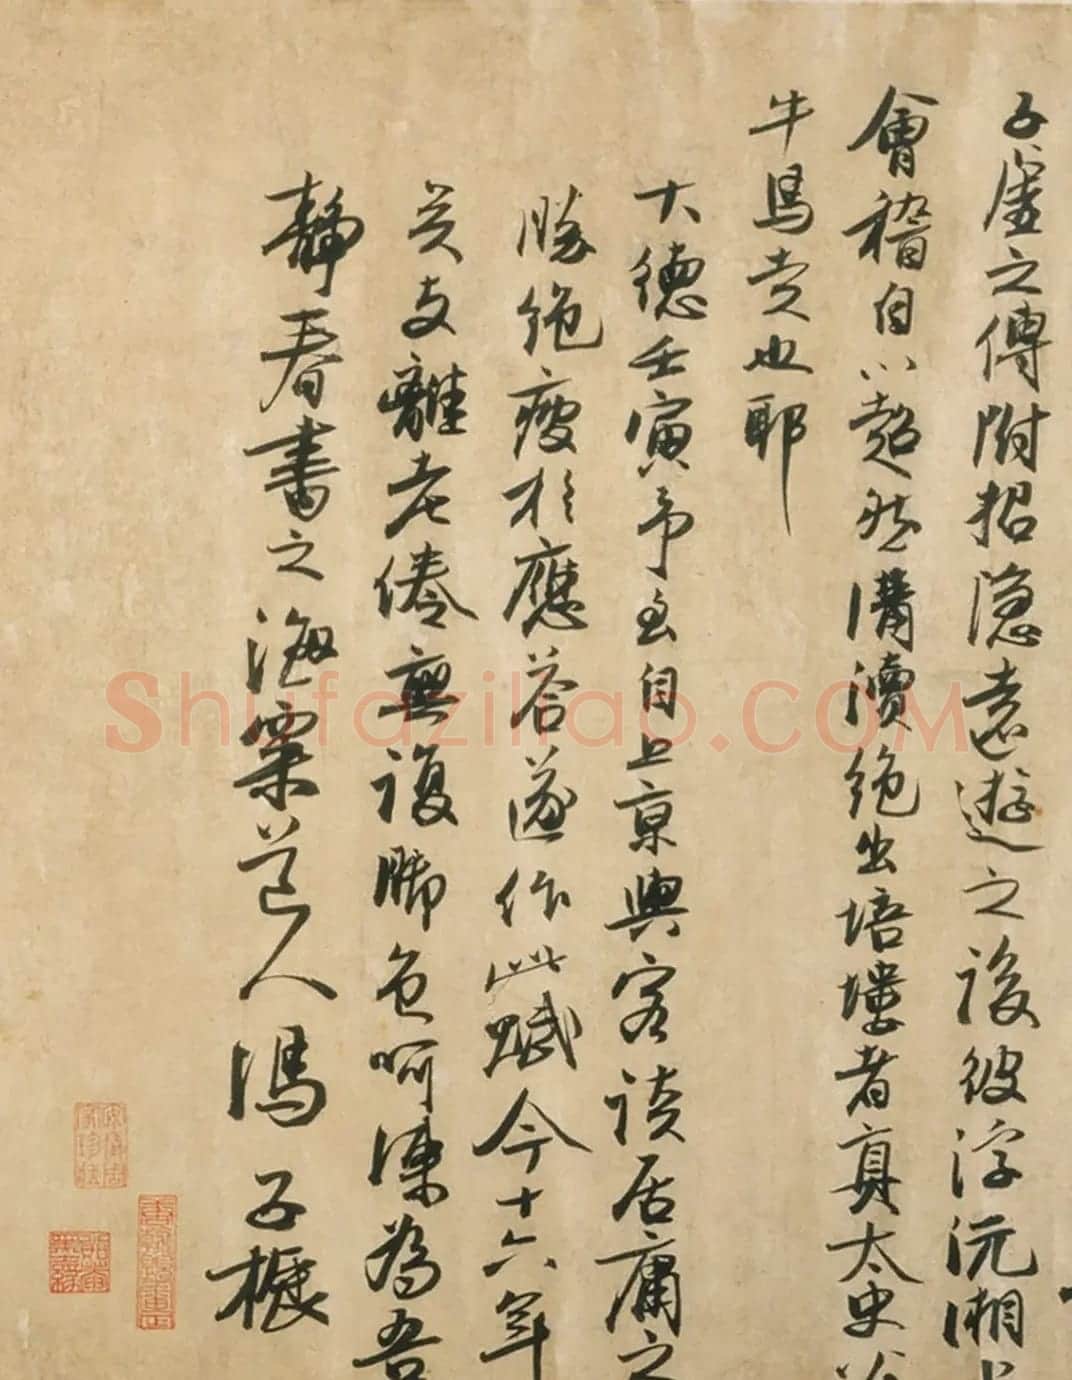 子虛之傳附招隱遠遊之後彼浮沅湘上
會稽自以超然溝瀆絕出培塿者真太史公
牛馬走也耶
大德壬寅予至自上京與客談居庸之
勝絕疲於應答遂作此賦今十六年
矣支離老倦無復脚色呵凍為吾
靜春書之海粟道人馮子振
Shufaziliao.COM